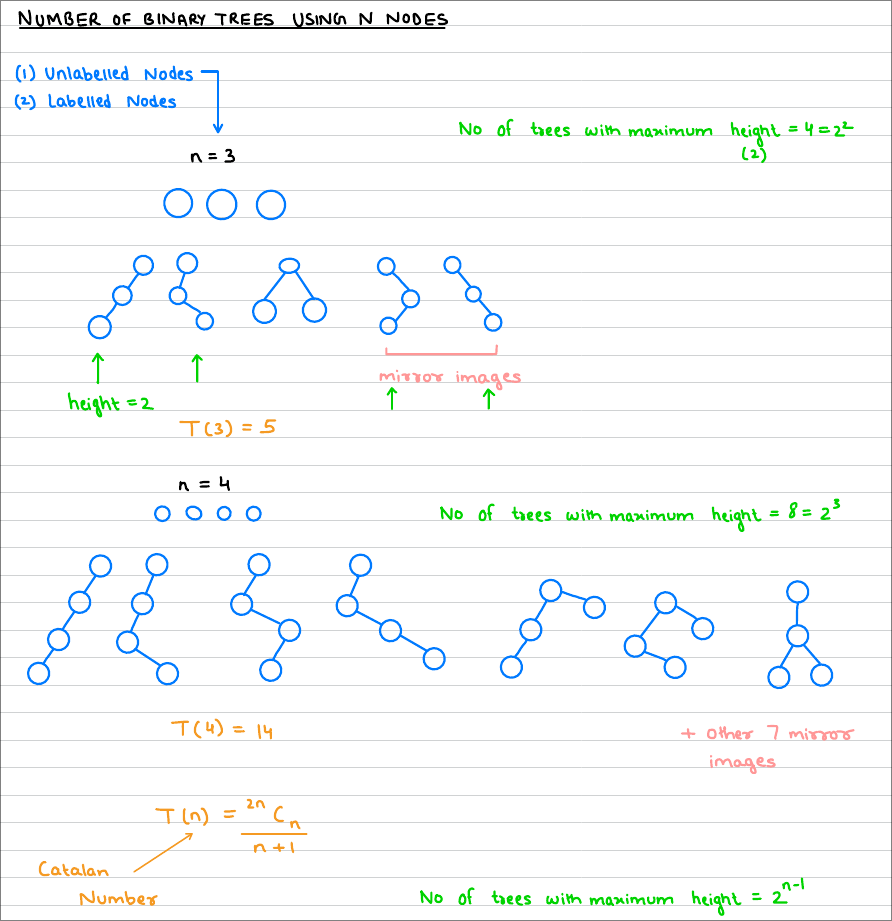 NUMBER OF BINARY TREES USING N NODES
(1) Unlabelled Nodes
(2) Labelled Nodes
No of trees with maximum height = 4 = 2²
(2)
n = 3
mirror images
height = 2
T(3) = 5
n = 4
No of trees with maximum height = 8 = 2³
T(4) = 14
+ other 7 mirror
images
T(n) = ²ⁿCₙ
n + 1
Catalan
Number
No of trees with maximum height = 2ⁿ⁻¹